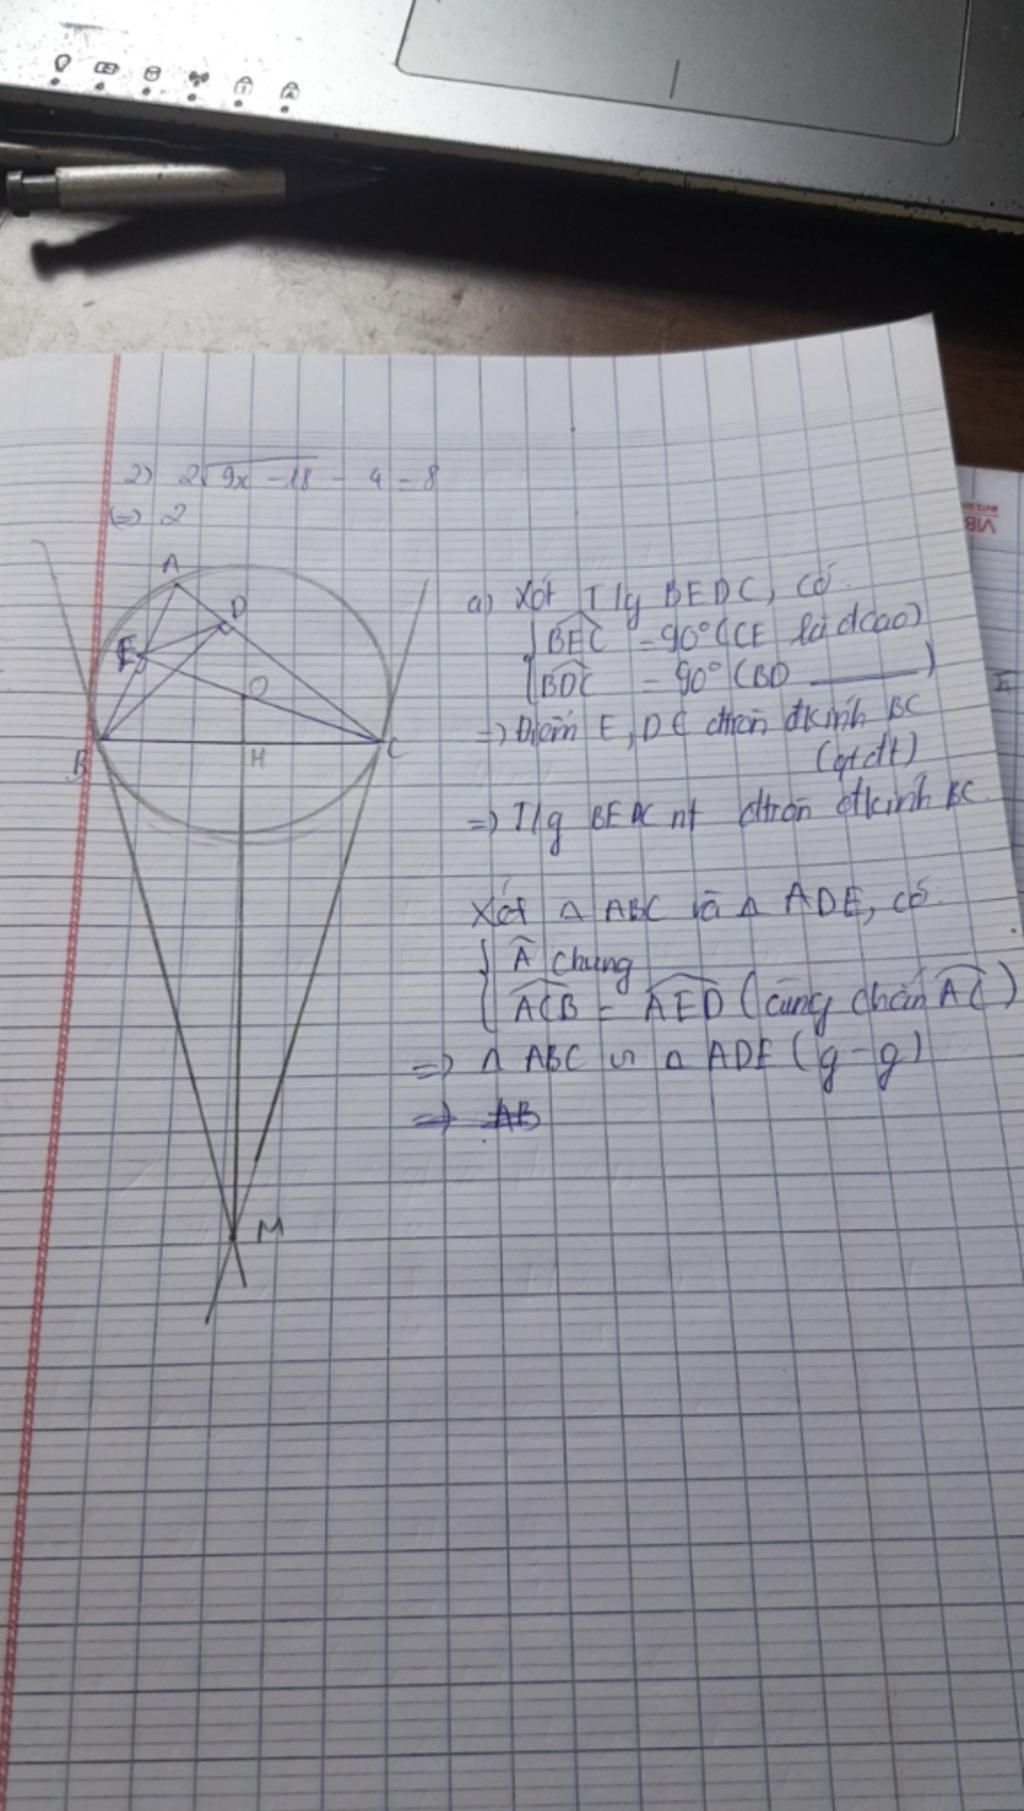 2) 2√9x - 18 - 4 = 8
(=) 2
A
D
E
O
B
H
C
M
a) Xét T/g BEDC, có
BEC = 90° (CE là đcao)
BDC = 90° (BD ——)
=> Điểm E, D € đtròn đkính BC
(qtđt)
=> T/g BEDC nt đtròn đkính BC
Xét △ ABC và △ ADE, có
A chung
ACB = AED (cùng chắn AC)
=> △ ABC ᔕ △ ADE (g-g)
=> AB
VIB